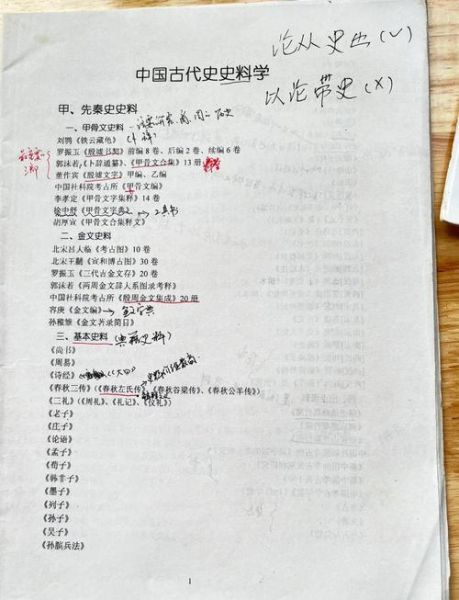 论从史出(√)
以论带史(×)
中国古代史史料学
甲、先秦史史料
一、甲骨文史料
刘鹗《铁云藏龟》
罗振玉《殷墟书契》前编8卷、后编2卷、续编6卷
郭沫若《卜辞通纂》、《甲骨文合集》13册
董作宾《殷墟文字》甲编、乙编
中国社科院考古所《甲骨文编》
李孝定《甲骨文字集释》14卷
徐中舒《甲骨文字典》 工具书
胡厚宣《甲骨文合集释文》
二、金文史料
北宋吕大临《考古图》10卷
北宋王黼《宣和博古图》30卷
罗振玉《三代吉金文存》20卷
郭沫若《两周金文辞大系图录考释》
中国社科院考古所《殷周金文集成》20册
容庚《金文编》→金文字典
孙稚雏《金文著录简目》
三、基本史料(典籍史料)
《尚书》
《周易》
《诗经》
《春秋三传》(《春秋左氏传》、《春秋谷梁传》、《春秋公羊传》)
《三礼》(《周礼》、《礼记》、《仪礼》)
《老子》
《庄子》
《论语》
《孟子》
《荀子》
《韩非子》
《墨子》
《列子》
《孙子》
《吴子》
《孙膑兵法》
1